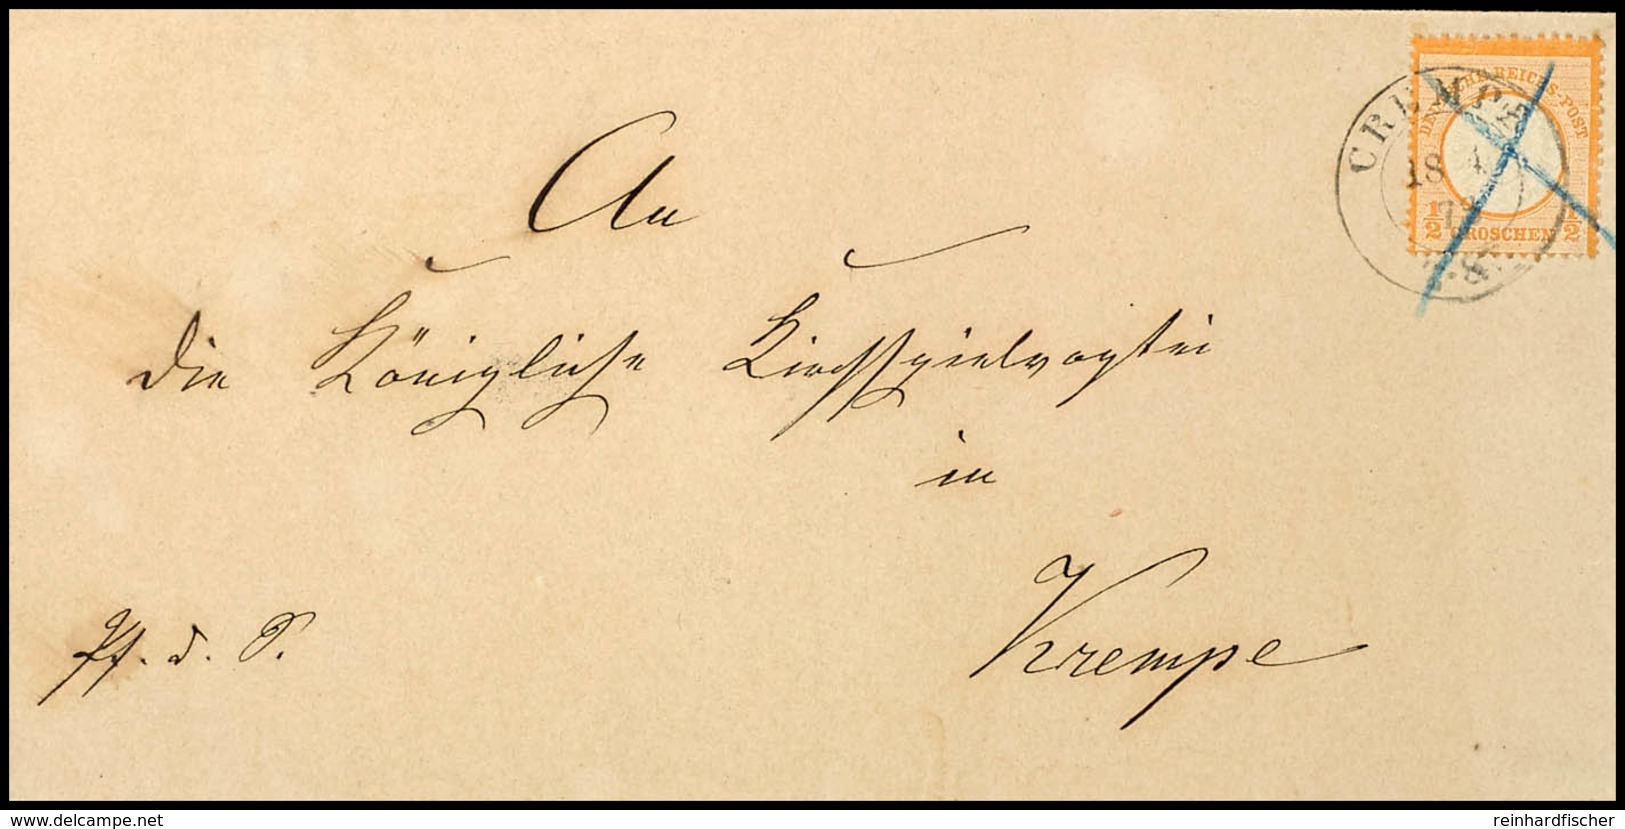 DEUTSCHE REICHS-POST
CREMPE
18 4
½ GROSCHEN ½
An
die Königliche Kirchspielvogtei
in
Krempe
www.delcampe.net
reinhardfischer